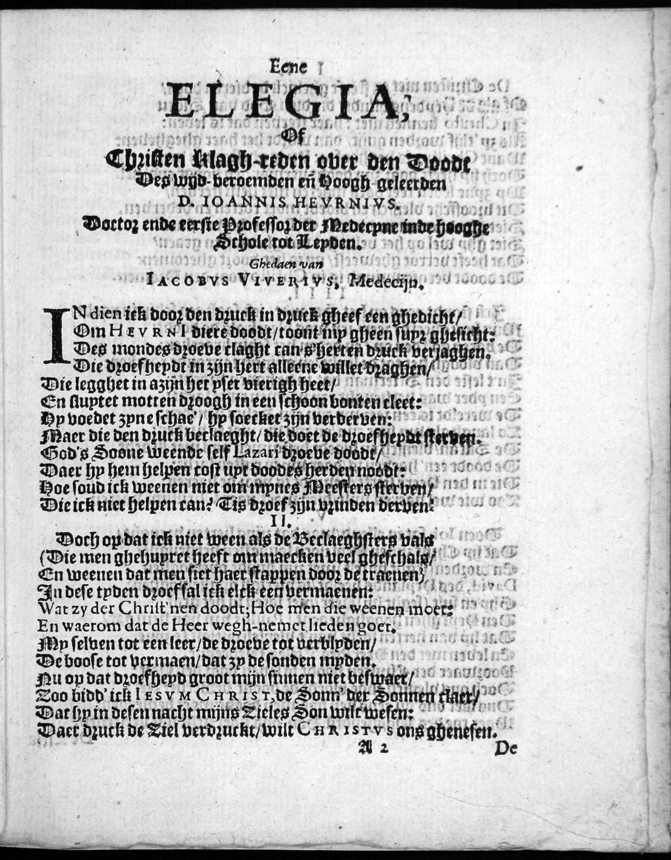 Eene
ELEGIA,
Of
Christen klagh-reden over den Doodt
Des wijd-beroemden en̄ Hoogh-geleerden
D. IOANNIS HEVRNIVS.
Doctor ende eerste Professor der Medecyne inde hooghe
Schole tot Leyden.
Ghedaen van
IACOBVS VIVERIVS, Medecijn.
INdien ick door den druck in druck gheef een ghedicht/
Om HEVRNI diere doodt/ toont my gheen suyr ghesicht:
Des mondes droeve claght can s'herten druck verjaghen.
Die droefheydt in zijn hert alleene willet draghen/
Die legghet in azijn het yser vierigh heet/
En sluytet motten droogh in een schoon bonten cleet:
Hy voedet zyne schae'/ hy soecket zijn verderven:
Maer die den druck beclaeght/ die doet de droefheydt sterven.
God's Soone weende self Lazari droeve doodt/
Daer hy hem helpen cost uyt doodes herden noodt:
Hoe soud ick weenen niet om mynes Meesters sterven/
Die ick niet helpen can? Tis droef zijn vrinden derven.
II.
Doch op dat ick niet ween als de Beclaeghsters vals
(Die men ghehuyret heeft om maecken veel gheschals/
En weenen dat men siet haer stappen door de traenen)
In dese tyden droef sal ick elck een vermaenen:
Wat zy der Christ'nen doodt; Hoe men die weenen moet:
En waerom dat de Heer wegh-nemet lieden goet.
My selven tot een leer/ de droeve tot verblyden/
De boose tot vermaen/ dat zy de sonden myden.
Nu op dat droefheyd groot mijn sinnen niet beswaer/
Zoo bidd' ick IESVM CHRIST, de Sonn' der Sonnen claer/
Dat hy in desen nacht mijns Zieles Son wilt wesen:
Daer druck de Ziel verdruckt/ wilt CHRISTVS ons ghenesen.
A 2 De